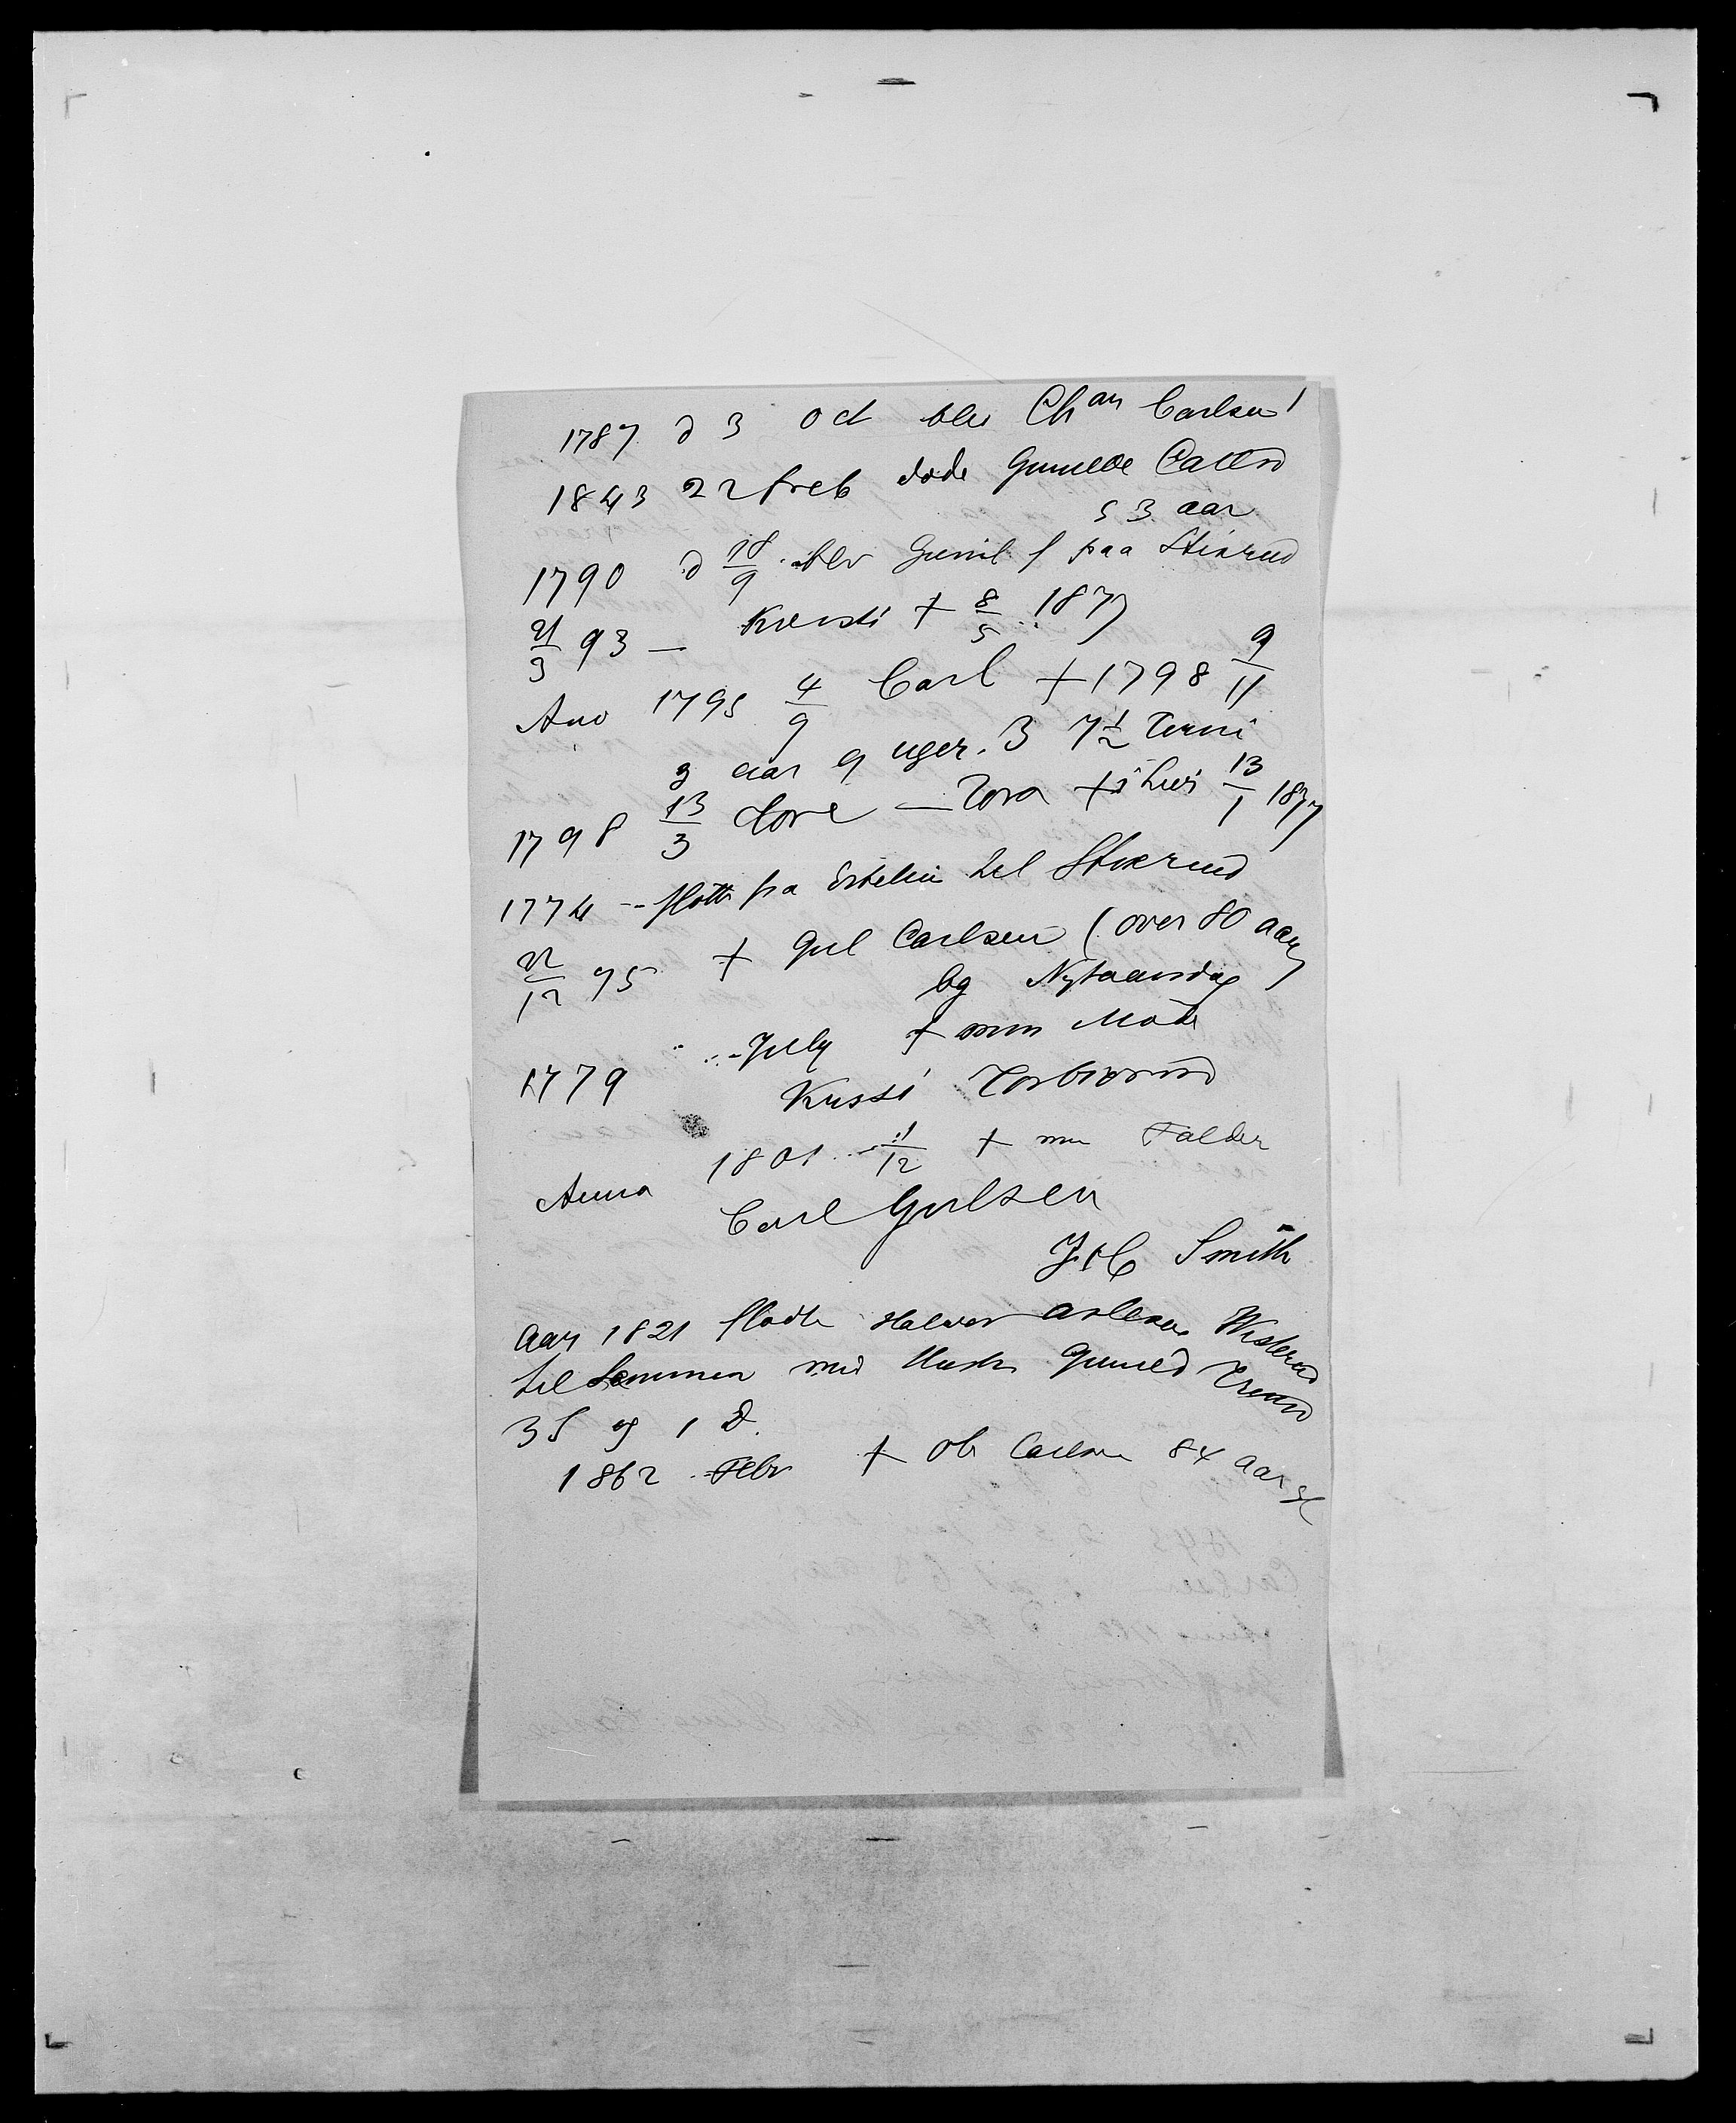 1787 d 3 Oct blev Chan Carlsen
1843 22 freb døde Gunilde Catted
53 aar
1790 d 18/9 blev Gunil f paa Stixrud
21/3 93 — Kiersti + 8/5 1877
Ano 1795 4/9 Carl + 1798 9/11
3 aar 9 uger. 3 7½
1798 13/3 Tore — Tora + i Lier 13/1 1877
1774 -- flötte fra til Stixrud
22/12 75 + Gul Carlsen (over 80 aar)
bg Nytaarsdag
1779 July + min Moder
Kirsti Torbiørnsd
Anno 1801 1/12 + min Fadder
Carl Gulsen
J. H. C Smith
Aar 1821 flødte Halvor Wisterud
til Lemmen med Hustru Guneld
3 S og 1 D.
1862 Febr + Ole Carlsen 84 aar gl